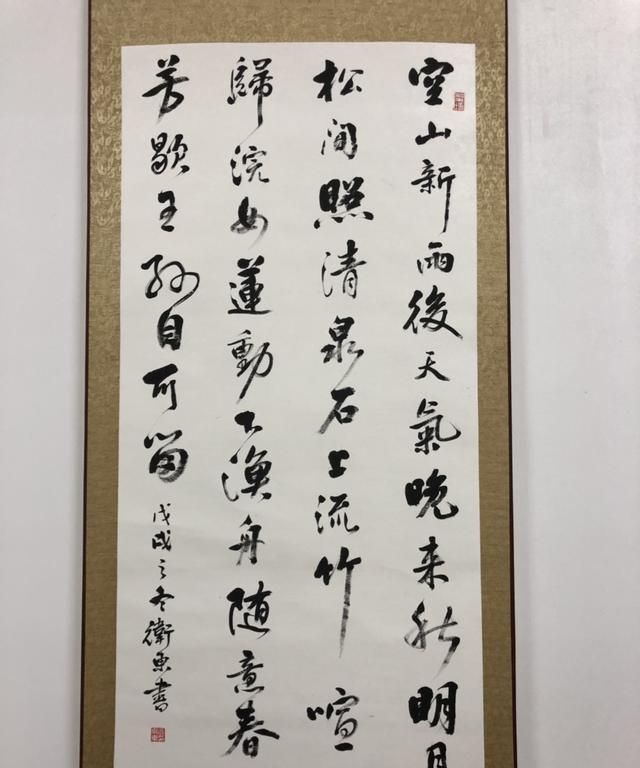 空山新雨後天氣晚来秋明月
松间照清泉石上流竹喧
歸浣女蓮動下漁舟随意春
芳歇王孫自可留
戊戌之冬衛東書